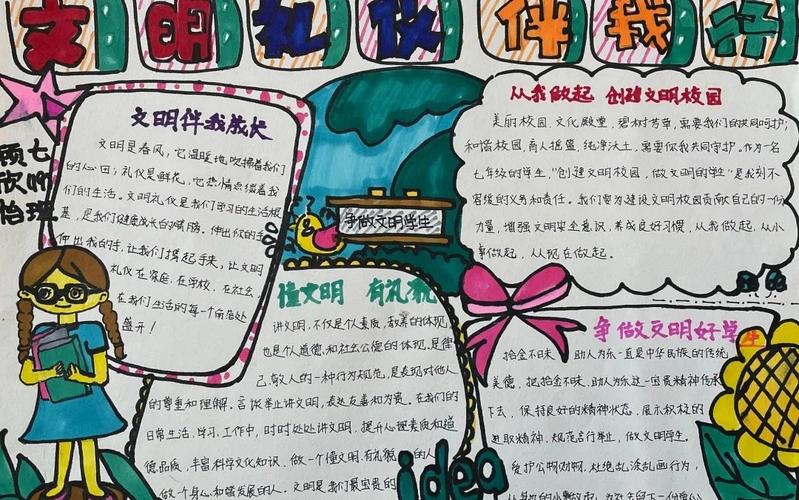 文明礼仪伴我行
七
顾欣怡 班
文明伴我成长
文明是春风,它温暖地吹拂着我们
的心田;礼仪是鲜花,它热情点缀着我
们的生活。文明礼仪是我们学习的生活根
基,是我们健康成长的臂膀。伸出你的手
伸出我的手,让我们携起手来,让文明
礼仪在家庭,在学校,在社会,
在我们生活的每一个角落处
盛开!
争做文明学生
从我做起 创建文明校园
美丽校园,文化殿堂,碧树芳草,需要我们的共同呵护;
和谐校园,育人摇篮,纯净沃土,需要你我共同守护。作为一名
七年级的学生,"创建文明校园,做文明的学生"是我刻不
容缓的义务和责任。我们要为建设文明校园贡献自己的一份
力量,增强文明安全意识,养成良好习惯,从我做起,从小
事做起,从现在做起。
懂文明 有礼貌
讲文明,不仅是个人素质、教养的体现,
也是个人道德、和社会公德的体现。是律
己、敬人的一种行为规范,是表现对他人
的尊重和理解。言谈举止讲文明,表达友善和为贵。在我们的
日常生活、学习、工作中,时时处处讲文明,提升心理素质和道
德品质,丰富科学文化知识,做一个懂文明、有礼貌的人
做一个身心和谐发展的人。文明是我们最宝贵的
idea
争做文明好学生
拾金不昧、助人为乐一直是中华民族的传统
美德,把拾金不昧、助人为乐这一宝贵精神传承
下去,保持良好的精神状态,展示积极的
进取精神,规范言行举止,做文明学生。
爱护公物财物,杜绝乱涂乱画行为,